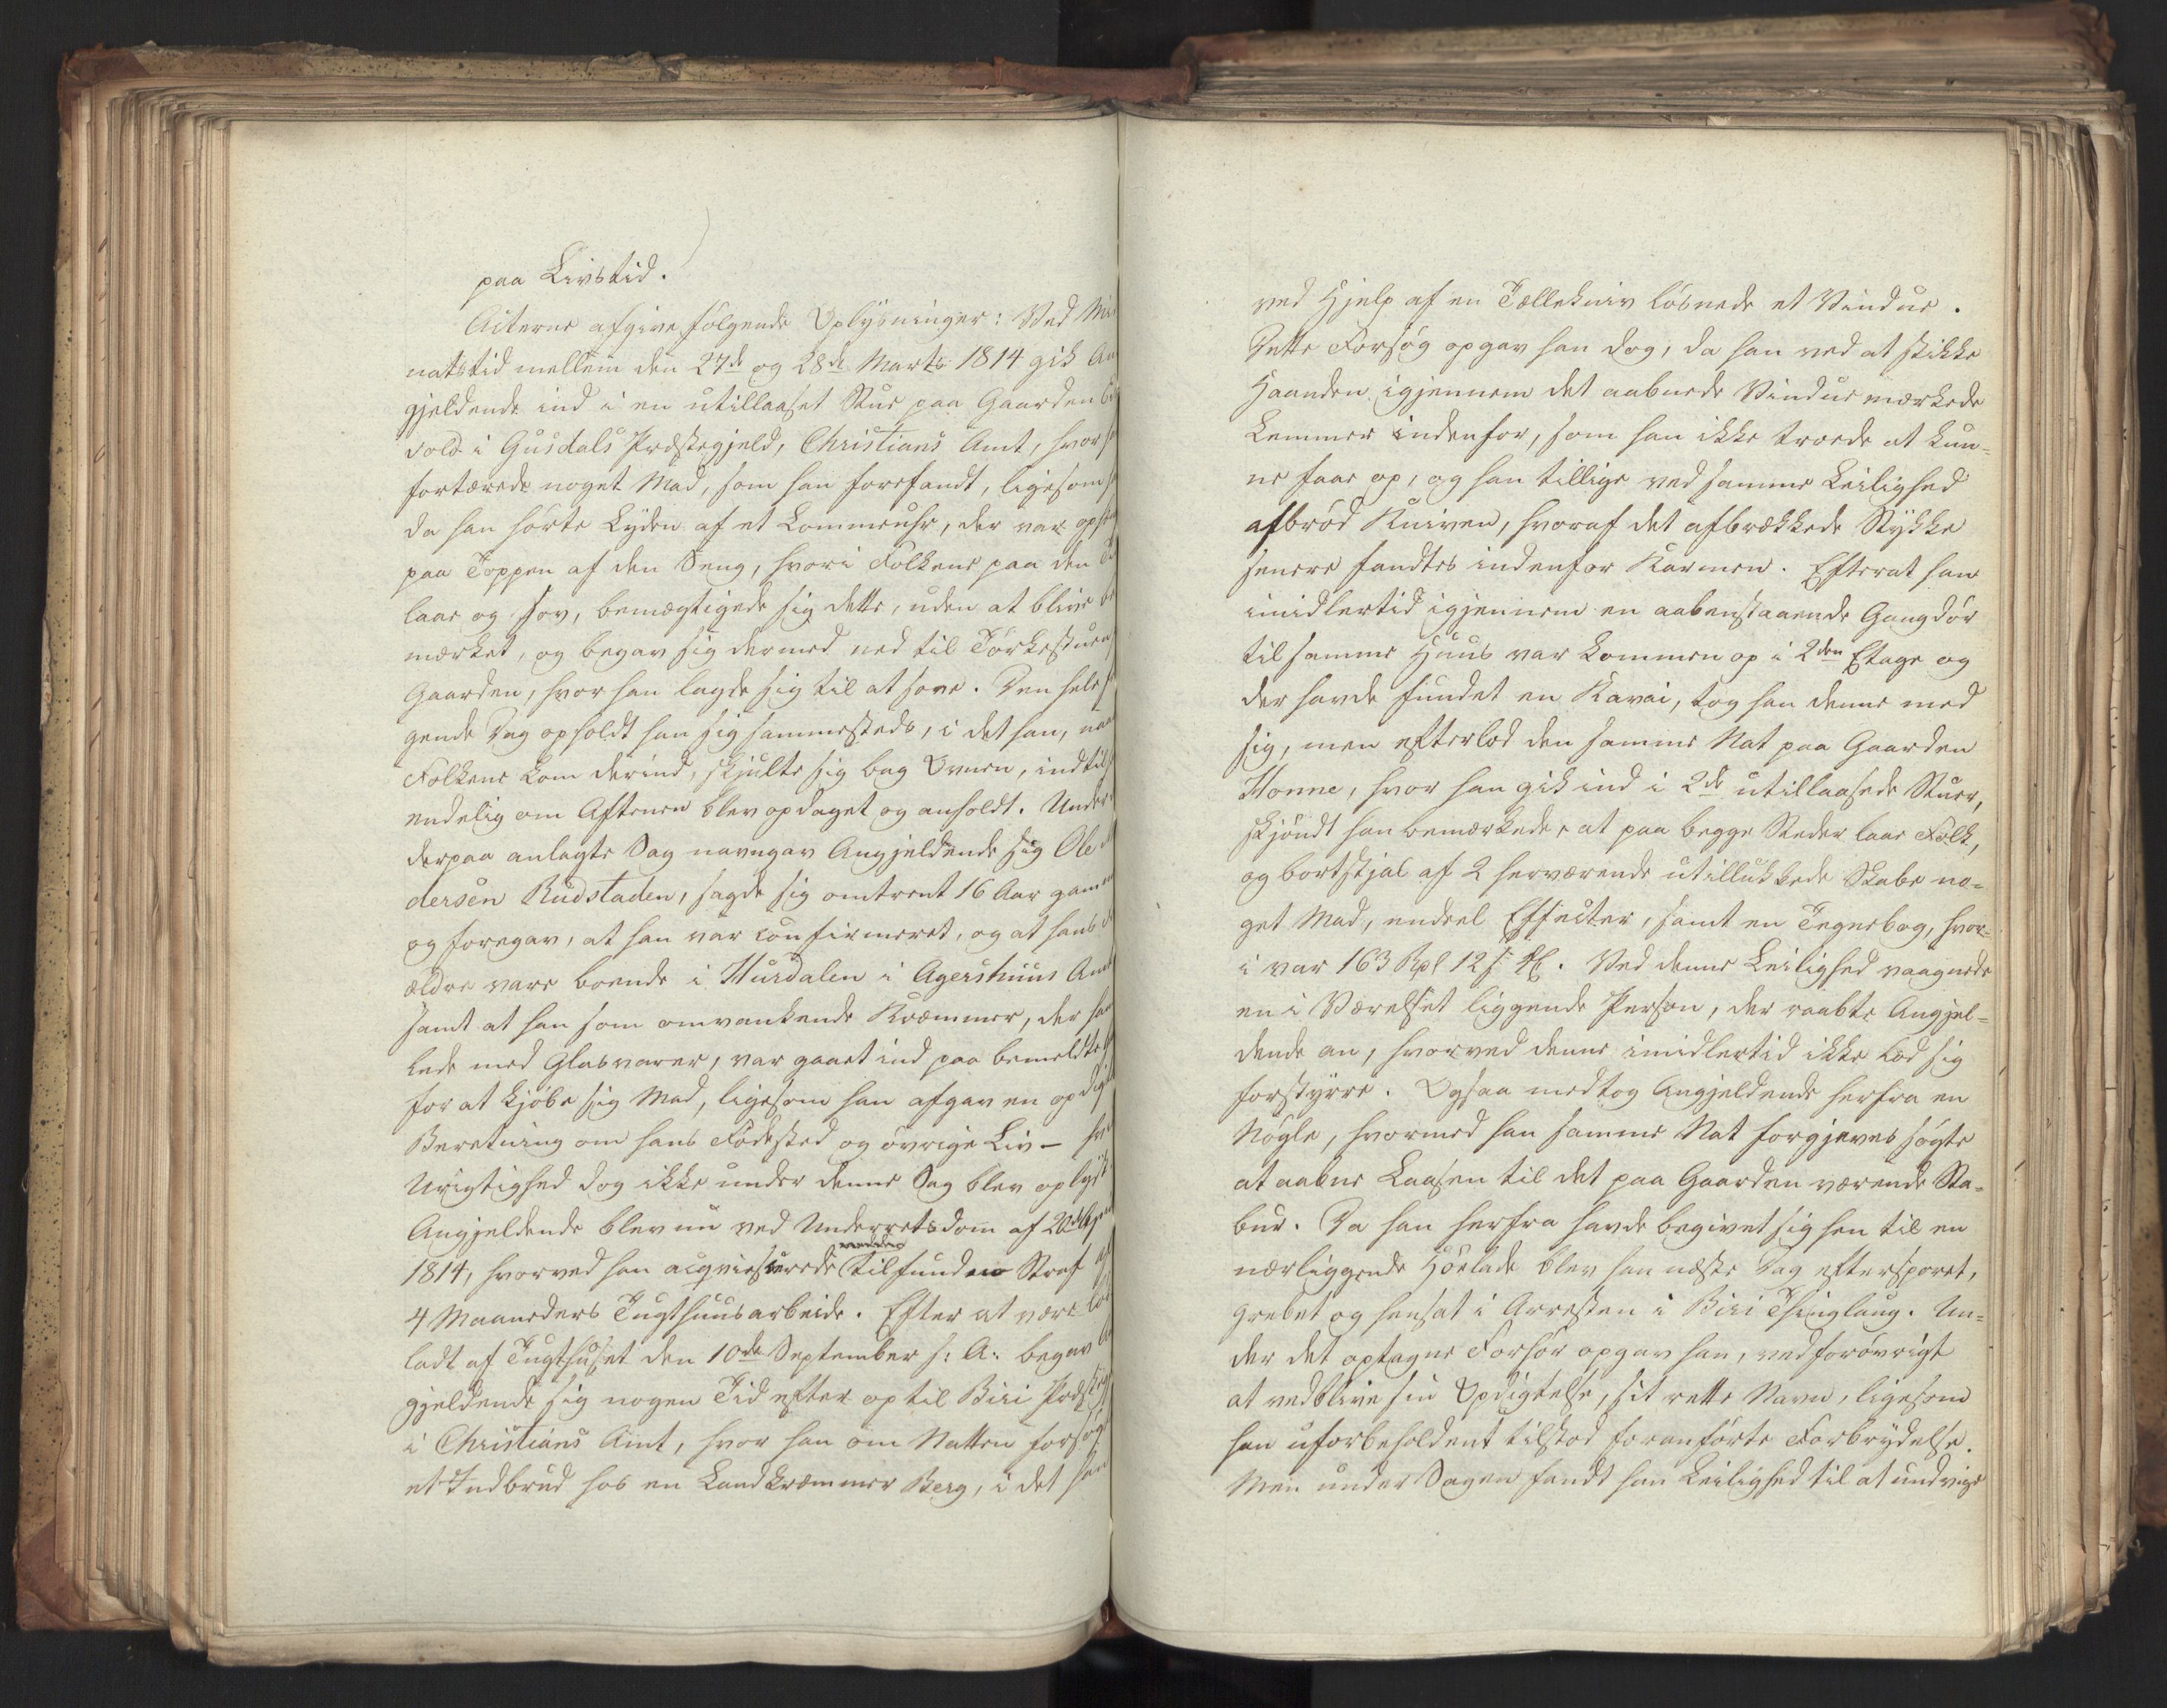 paa Livstid.
Acterne afgive følgende Oplysninger: Ved
natstid mellem den 27de og 28de Marts 1814 gik An
gjeldende ind i en utillaaset Stue paa Gaarden
vold i Gusdals Præstegjeld, Christians Amt, hvor
fortærede noget Mad, som han forefandt, ligesom
da han hørte Lyden af et Lommeuhr, der var
paa Toppen af den Seng, hvori Folkene paa den
laae og sov, bemægtigede sig dette, uden at blive be
mærket, og begav sig dermed ned til Tørkestuen
Gaarden, hvor han lagde sig til at sove. Den hele
gende Dag opholdt han sig sammesteds, i det han, naar
Folkene kom derind, skjulte sig bag Ovnen, indtil
endelig om Aftenen blev opdaget og anholdt. Under
derpaa anlagte Sag navngav Angjeldende sig Ole
dersen Rudstaden, sagde sig omtrent 16 Aar gam
og foregav, at han var confirmeret, og at hans
ældre vare boende i Hurdalen i Agershuus Amt
samt at han som omvankende Kræmmer, der han
lede med Glasvarer, var gaaet ind paa bemeldte
for at kjøbe sig Mad, ligesom han afgav en opdigt
Beretning om hans Fødested og øvrige Liv –
Urigtighed dog ikke under denne Sag blev oplyst
Angjeldende blev nu ved Underretsdom af 20de
1814, hvorved han acqviescerede tilfunden Straf
4 Maaneders Tugthuusarbeide. Efter at være løs
ladt af Tugthuset den 10de September s: A: begav
gjeldende sig nogen Tid efter op til Biri
i Christians Amt, hvor han om Natten forsøgte
et Indbrud hos en Landkræmmer Berg, i det han
ved Hjelp af en Tællekniv løsnede et Vindue.
Dette Forsøg opgav han dog, da han ved at stikke
Haanden igjennem det aabnede Vindue mærkede
Lemmer indenfor, som han ikke troede at kun=
ne faae op, og han tillige ved samme Leilighed
afbrød Kniven, hvoraf det afbrækkede Stykke
senere fandtes indenfor Karmen. Efterat han
imidlertid igjennem en aabenstaaende Gangdør
til samme Huus var kommen op i 2den Etage og
der havde fundet en Kavai, tog han denne med
sig, men efterlod den samme Nat paa Gaarden
Honne, hvor han gik ind i 2de utillaasede Stuer,
skjøndt han bemærkede, at paa begge Steder laae Folk,
og bortstjal af 2 herværende utillukkede Skabe no=
get Mad, endeel Effecter, samt en Tegnebog, hvor=
i var 163 Rpl 12 s. Ved denne Leilighed vaagnede
en i Værelset liggende Person, der raabte Angjel=
dende an, hvorved denne imidlertid ikke lod sig
forstyrre. Ogsaa medtog Angjeldende herfra en
Nøgle, hvormed han samme Nat forgjeves søgte
at aabne Laasen til det paa Gaarden værende Sta=
bur. Da han herfra havde begivet sig hen til en
nærliggende Høelade blev han næste Dag eftersporet,
grebet og hensat i Arresten i Biri Thinglaug. Un=
der det optagne Forhør opgav han, ved forøvrigt
at vedblive sin Opdigtelse, sit rette Navn, ligesom
han uforbeholdent tilstod foranførte Forbrydelse.
Men under Sagen fandt han Leilighed til at undvige